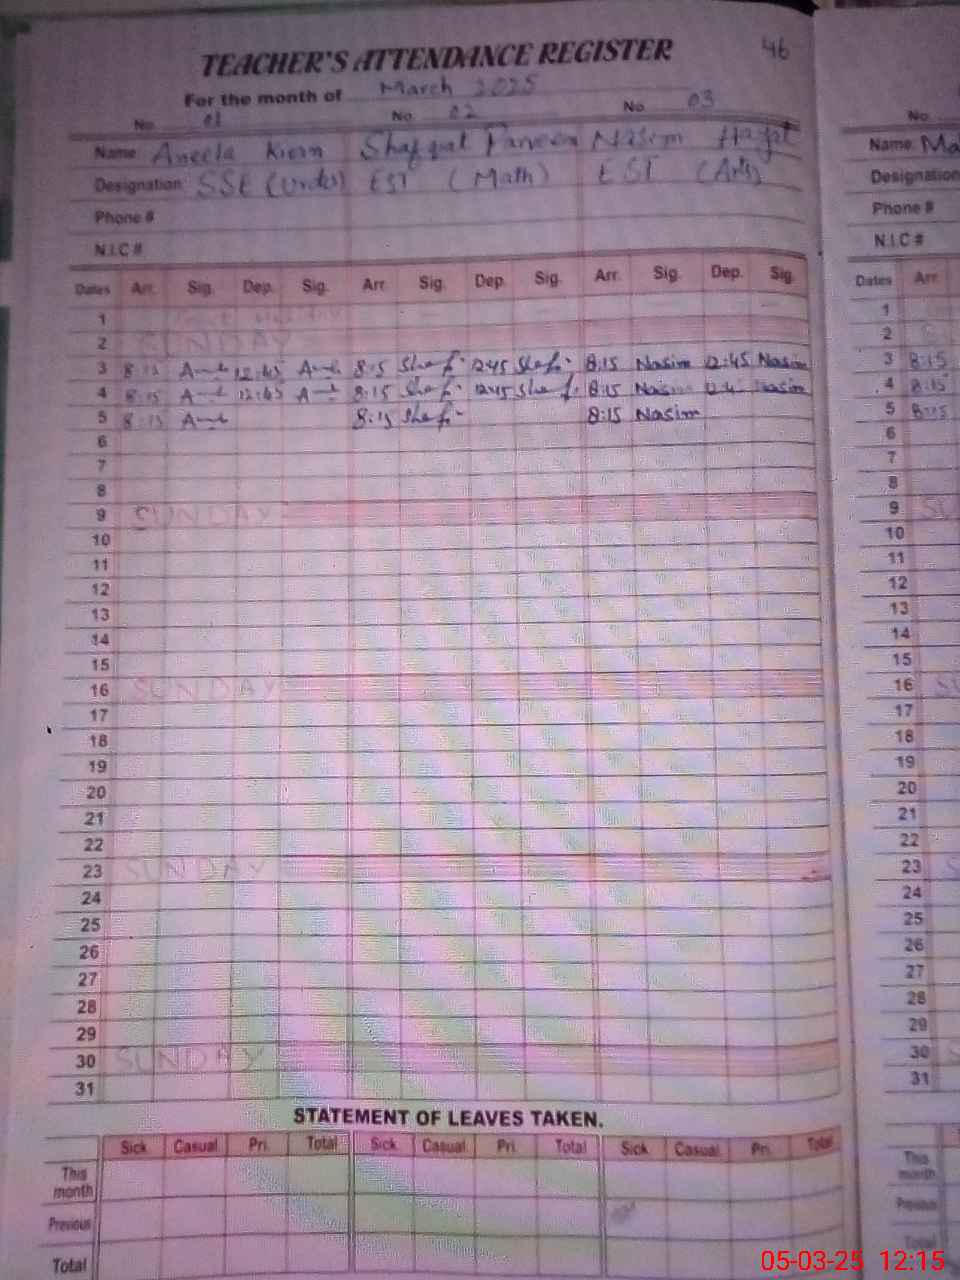 TEACHER'S ATTENDANCE REGISTER 46
For the month of March 2025
No. 01 No. 02 No 03 No.
Name Aneela Kiran Shafqat Parveen Nasim Hayat Name: Ma
Designation SSE (Urdu) EST (Math) EST (Arts) Designation
Phone # Phone #
N.I.C # N.I.C #
Dates Arr. Sig. Dep. Sig. Arr. Sig. Dep. Sig. Arr. Sig. Dep. Sig. Dates Arr.
1 1
2 SUNDAY 2
3 8:15 12:45 8:15 Shaf 12:45 Shaf 8:15 Nasim 12:45 Nasim 3 8:15
4 8:15 12:45 8:15 Shaf 12:45 Shaf 8:15 Nasim Nasim 4 8:15
5 8:15 8:15 Shaf 8:15 Nasim 5 8:15
6 6
7 7
8 8
9 SUNDAY 9 SU
10 10
11 11
12 12
13 13
14 14
15 15
16 SUNDAY 16 SU
17 17
18 18
19 19
20 20
21 21
22 22
23 SUNDAY 23 S
24 24
25 25
26 26
27 27
28 28
29 29
30 SUNDAY 30 S
31 31
STATEMENT OF LEAVES TAKEN.
Sick Casual Pri. Total Sick Casual Pri. Total Sick Casual Pri. Total
This month This month
Previous Previous
Total Total
05-03-25 12:15